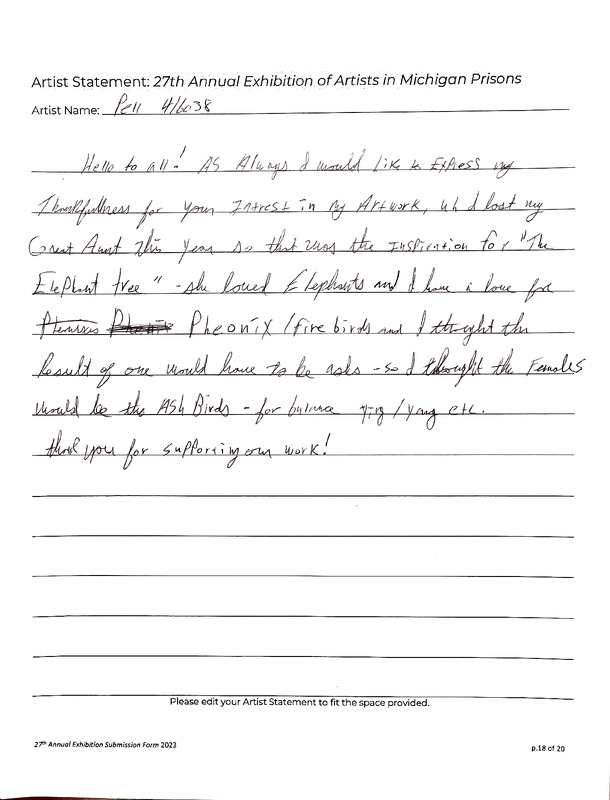 Artist Statement: 27th Annual Exhibition of Artists in Michigan Prisons
Artist Name: Pell 416038
Hello to all! AS Always I would like to Express my
Thankfullness for your Intrest in My Artwork, I lost my
Great Aunt This Year so that was the Inspiration for "The
Elephant tree" - she loved Elephants and I have a love for
Pheonix / fire birds and I thought the
Result of one would have to be ash - so I thought the Females
would be the ASh Birds - for balance ying / yang etc.
thank you for supporting our work!
Please edit your Artist Statement to fit the space provided.
27th Annual Exhibition Submission Form 2023
p.18 of 20